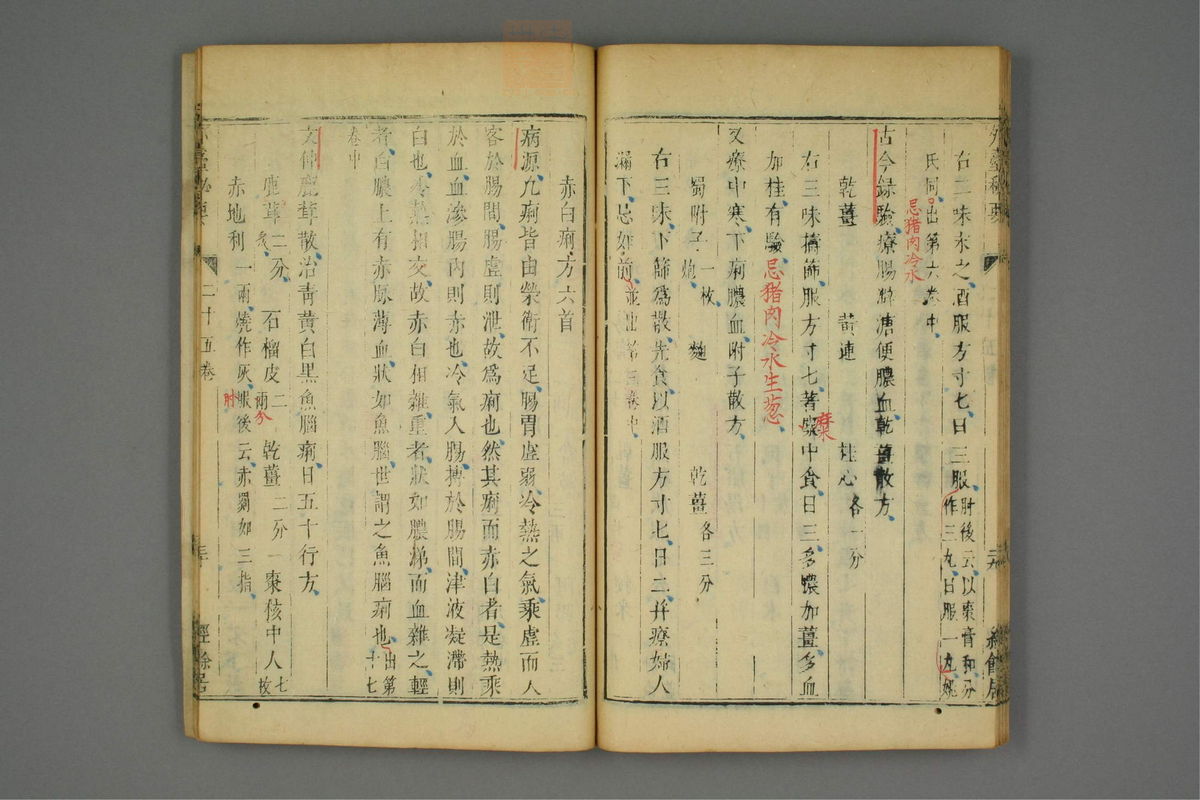 右三味末之酒服方寸匕日三服肘後云以棗膏和分作三九日服一丸姚
氏同出第六卷中
忌猪肉冷水
古今録驗療腸澼溏便膿血乾薑散方
乾薑 黄連 桂心各一分
右三味擣篩服方寸匕著糜中食日三多膿加薑多血
麻米
加桂有驗忌猪肉冷水生葱
又療中寒下痢膿血附子散方
蜀附子一枚炮 麴 乾薑各三分
右三味下篩爲散先食以酒服方寸匕日二并療婦人
漏下忌如前並出第三卷中
赤白痢方六首
病源凡痢皆由榮衛不足腸胃虚弱冷熱之氣乘虚而人
客於腸間腸虚則泄故爲痢也然其痢而赤白者是熱乘
於血血滲腸内則赤也冷氣人腸搏於腸間津液凝滯則
白也冷熱相交故赤白相雜重者狀如膿涕而血雜之輕
者白膿上有赤脉薄血狀如魚腦世謂之魚腦痢也出第十七
卷中
文仲鹿茸散治青黄白黒魚腦痢日五十行方
鹿茸二分炙 石榴皮二兩分 乾薑二分 棗核中人七枚
赤地利一兩燒作灰肘後云赤罽如三指
外臺秘要 二十五卷 經餘居